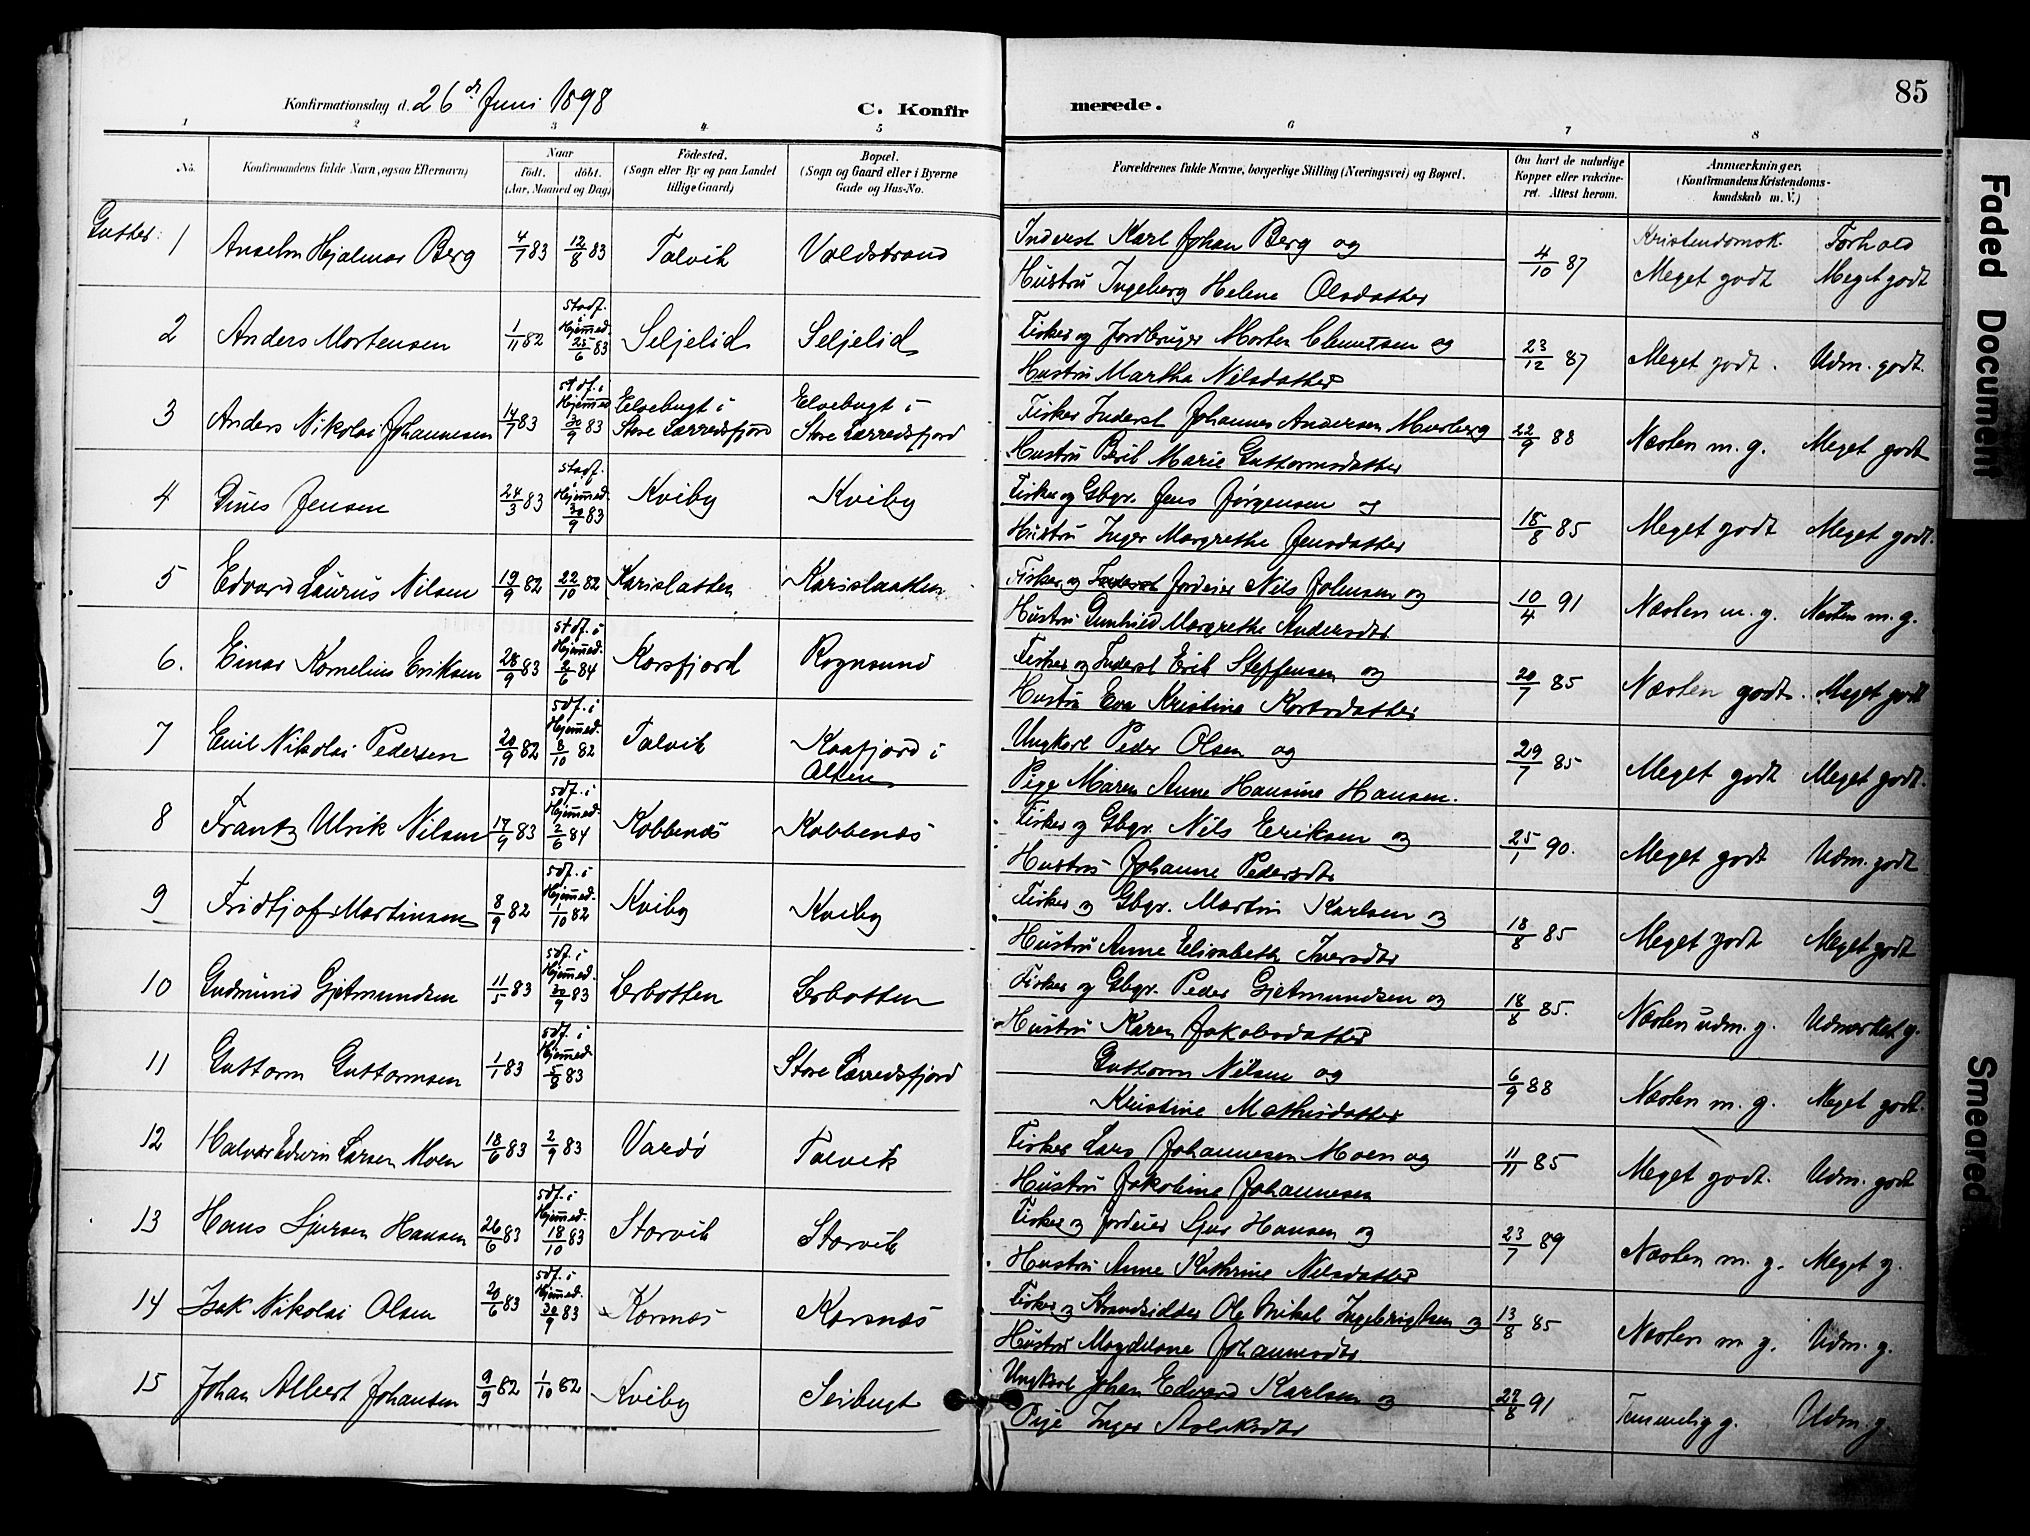 85
Konfirmationsdag d. 26de Juni 1898
C. Konfirmerede.
1 2 3 4 5 6 7 8
No.
Konfirmandens fulde Navn, ogsaa Efternavn)
Naar
født. døbt.
(Aar, Maaned og Dag)
Fødested.
(Sogn eller By og paa Landet tillige Gaard)
Bopæl.
(Sogn og Gaard eller i Byerne Gade og Hus-No.
Forældrenes fulde Navne, borgerlige Stilling (Næringsvei) og Bopæl.
Om havt de naturlige Kopper eller vakcineret. Attest herom.
Anmærkninger.
(Konfirmandens Kristendomskundskab m. V.)
Gutter: 1 Anselm Hjalmar Berg 4/7 83 12/8 83 Talvik Voldstrand Inderst Karl Johan Berg og
Hustru Ingeberg Helene Olsdatter 4/10 87 Kristendomsk. Meget godt Forhold Meget godt
2 Anders Mortensen 1/11 82 stadf. i Hjemmed. 25/6 83 Seljelid Seljelid Fisker og Jordbruger Morten Clemetsen og
Hustru Martha Nilsdatter 23/12 87 Meget godt. Udm. godt.
3 Anders Nikolai Johannesen 14/7 83 stdf. i Hjemmed 30/9 83 Elvebugt i Store Lærredsfjord Elvebugt i Store Lærredsfjord Fisker Inderst Johannes Andersen Murberg
Hustru Berit Marie Guttormsdatter 22/9 88 Næsten m. g. Meget godt
4 Dines Jensen 24/3 83 stadf. i Hjemmed. 30/9 83 Kviby Kviby Fisker og Gbgr. Jens Jørgensen og
Hustru Inger Margrethe Jensdatter 18/8 85 Meget godt Meget godt.
5 Edvard Laurus Nilsen 19/9 82 22/10 82 Karislatten Karislaatten Fisker og Inderst Jordeier Nils Johnsen og
Hustru Gunhild Margrethe Andersdtr 10/4 91 Næsten m. g. Næsten m. g.
6. Einar Kornelius Eriksen 28/9 83 stdf. i Hjemmed. 2/6 84 Korsfjord Rognsund Fisker og Inderst Erik Steffensen og
Hustru Eva Kristine Kortsdatter 20/7 85 Næsten godt. Meget godt
7 Emil Nikolai Pedersen 20/9 82 sdf. i Hjemmed. 8/10 82 Talvik Kaafjord i Alten Ungkarl Peder Olsen og
Pige Maren Anne Hansine Hansen. 29/7 85 Meget godt Meget godt.
8 Frantz Ulrik Nilsen 17/9 83 sdf. i Hjemmed 2/6 84 Kobbenæs Kobbenæs Fisker og Gbgr. Nils Eriksen og
Hustru Johanne Pedersdtr 25/1 90. Meget godt Udm. godt
9 Fridtjof Martinsen 8/9 82 sdf. i Hjemmed. 1/10 82 Kviby Kviby Fisker og Gbgr. Martin Karlsen og
Hustru Anne Elisabeth Iversdtr 18/8 85 Meget godt Meget godt
10 Gudmund Gjetmundsen 11/5 83 sdf. i Hjemmed. 30/9 83 Lerbotten Lerbotten Fisker og Gbgr. Peder Gjetmundsen og
Hustru Karen Jakobsdatter 18/8 85. Næsten udm. g. Udmærket g.
11 Guttorm Guttormsen 1/1 83 sdf. i Hjemmed. 5/8 83 Store Lærredsfjord Guttorm Nilsen og
Kristine Mathisdatter 6/9 88 Næsten m. g. Meget godt.
12 Halvor Edvin Larsen Moen 18/6 83 2/9 83 Vardø Talvik Fisker Lars Johannesen Moen og
Hustru Jakobine Johannesen 11/11 85 Meget godt. Udm. godt
13 Hans Sjursen Hansen 26/6 83 sdf. i Hjemmed. 18/10 83 Storvik Storvik Fisker og Jordeier Sjur Hansen og
Hustru Anne Kathrine Nilsdatter 23/7 89 Næsten m. g. Meget g.
14 Isak Nikolai Olsen 20/6 83 sdf. i Hjemmed. 30/9 83 Korsnæs Korsnæs Fisker og Strandsidder Ole Mikal Ingebrigtsen og
Hustru Magdelone Johannesdtr. 13/8 85 Næsten m. g. Udm. g.
15 Johan Albert Johansen 9/9 82 1/10 82 Kviby Seibugt Ungkarl Johan Edvard Karlsen og
Pige Inger Aslaksdtr 27/8 91 Temmelig g. Udm. g.
Faded Document
Smeared